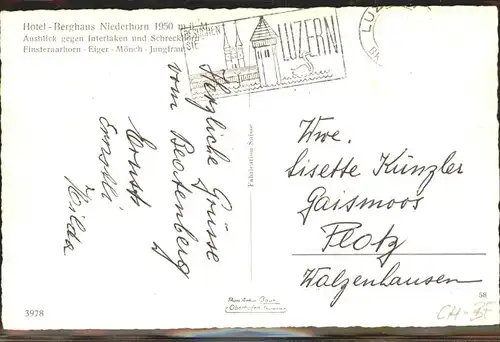 Hotel-Berghaus Niederhorn 1950 m ü. M.
Ausblick gegen Interlaken und Schreckhorn
Finsteraarhorn - Eiger - Mönch - Jungfrau
SIE
LUZERN
LUZ
Herzliche Grüsse
vom Beatenberg
Ernst
Ernstli
Hilda
Fabrication Suisse
Wwe.
Lisette Künzler
Gaismoos
Platz
Walzenhausen
3978
58
CH-